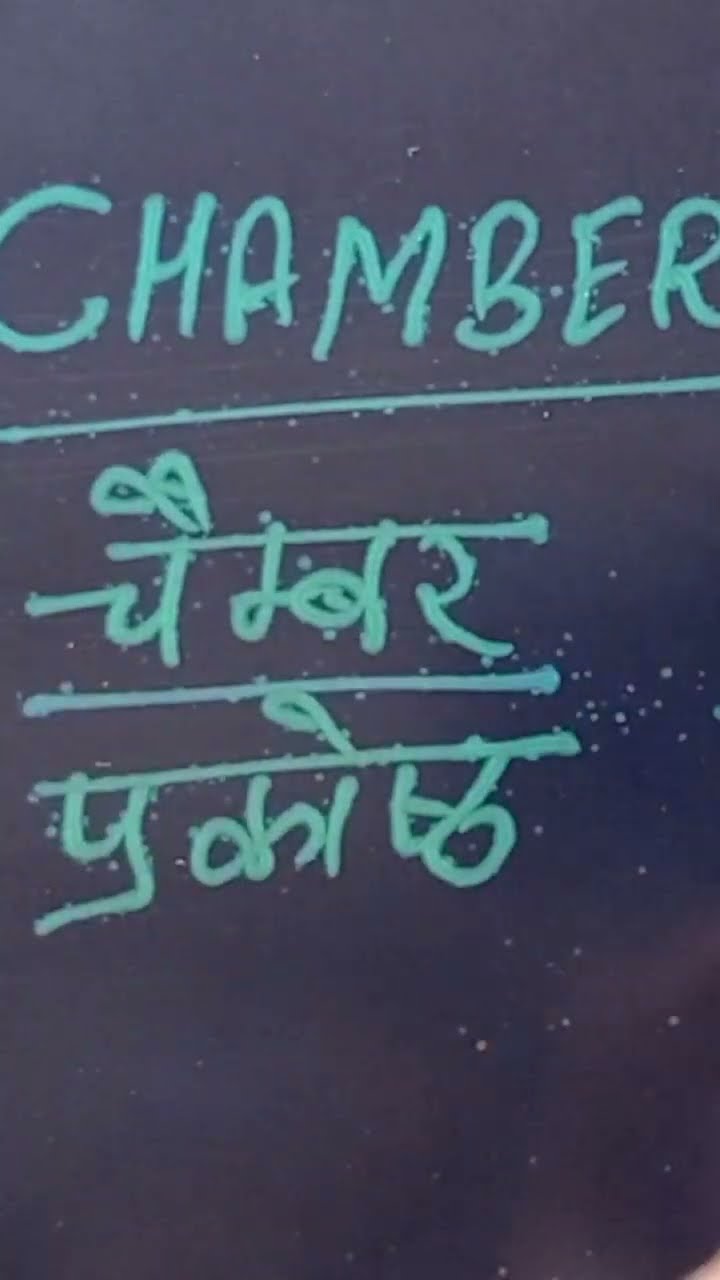 CHAMBER
चैम्बर
प्रकोष्ठ